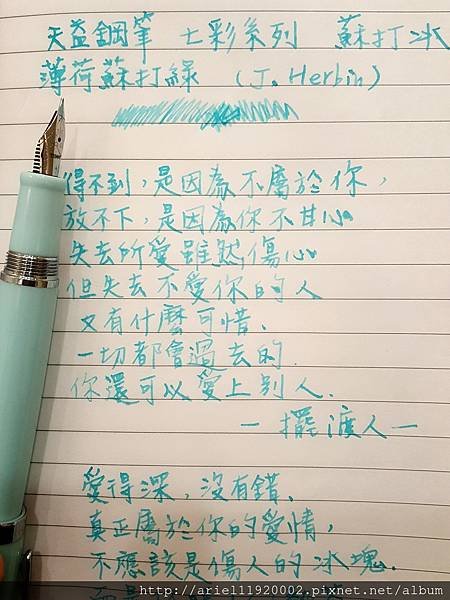 天益鋼筆 七彩系列 蘇打冰
薄荷蘇打綠 (J. Herbin)
得不到,是因為不屬於你,
放不下,是因為你不甘心。
失去所愛雖然傷心
但失去不愛你的人
又有什麼可惜、
一切都會過去的.
你還可以愛上別人.
— 擺渡人 —
愛得深,沒有錯、
真正屬於你的愛情,
不應該是傷人的冰塊.
http://ariel11920002.pixnet.net/album